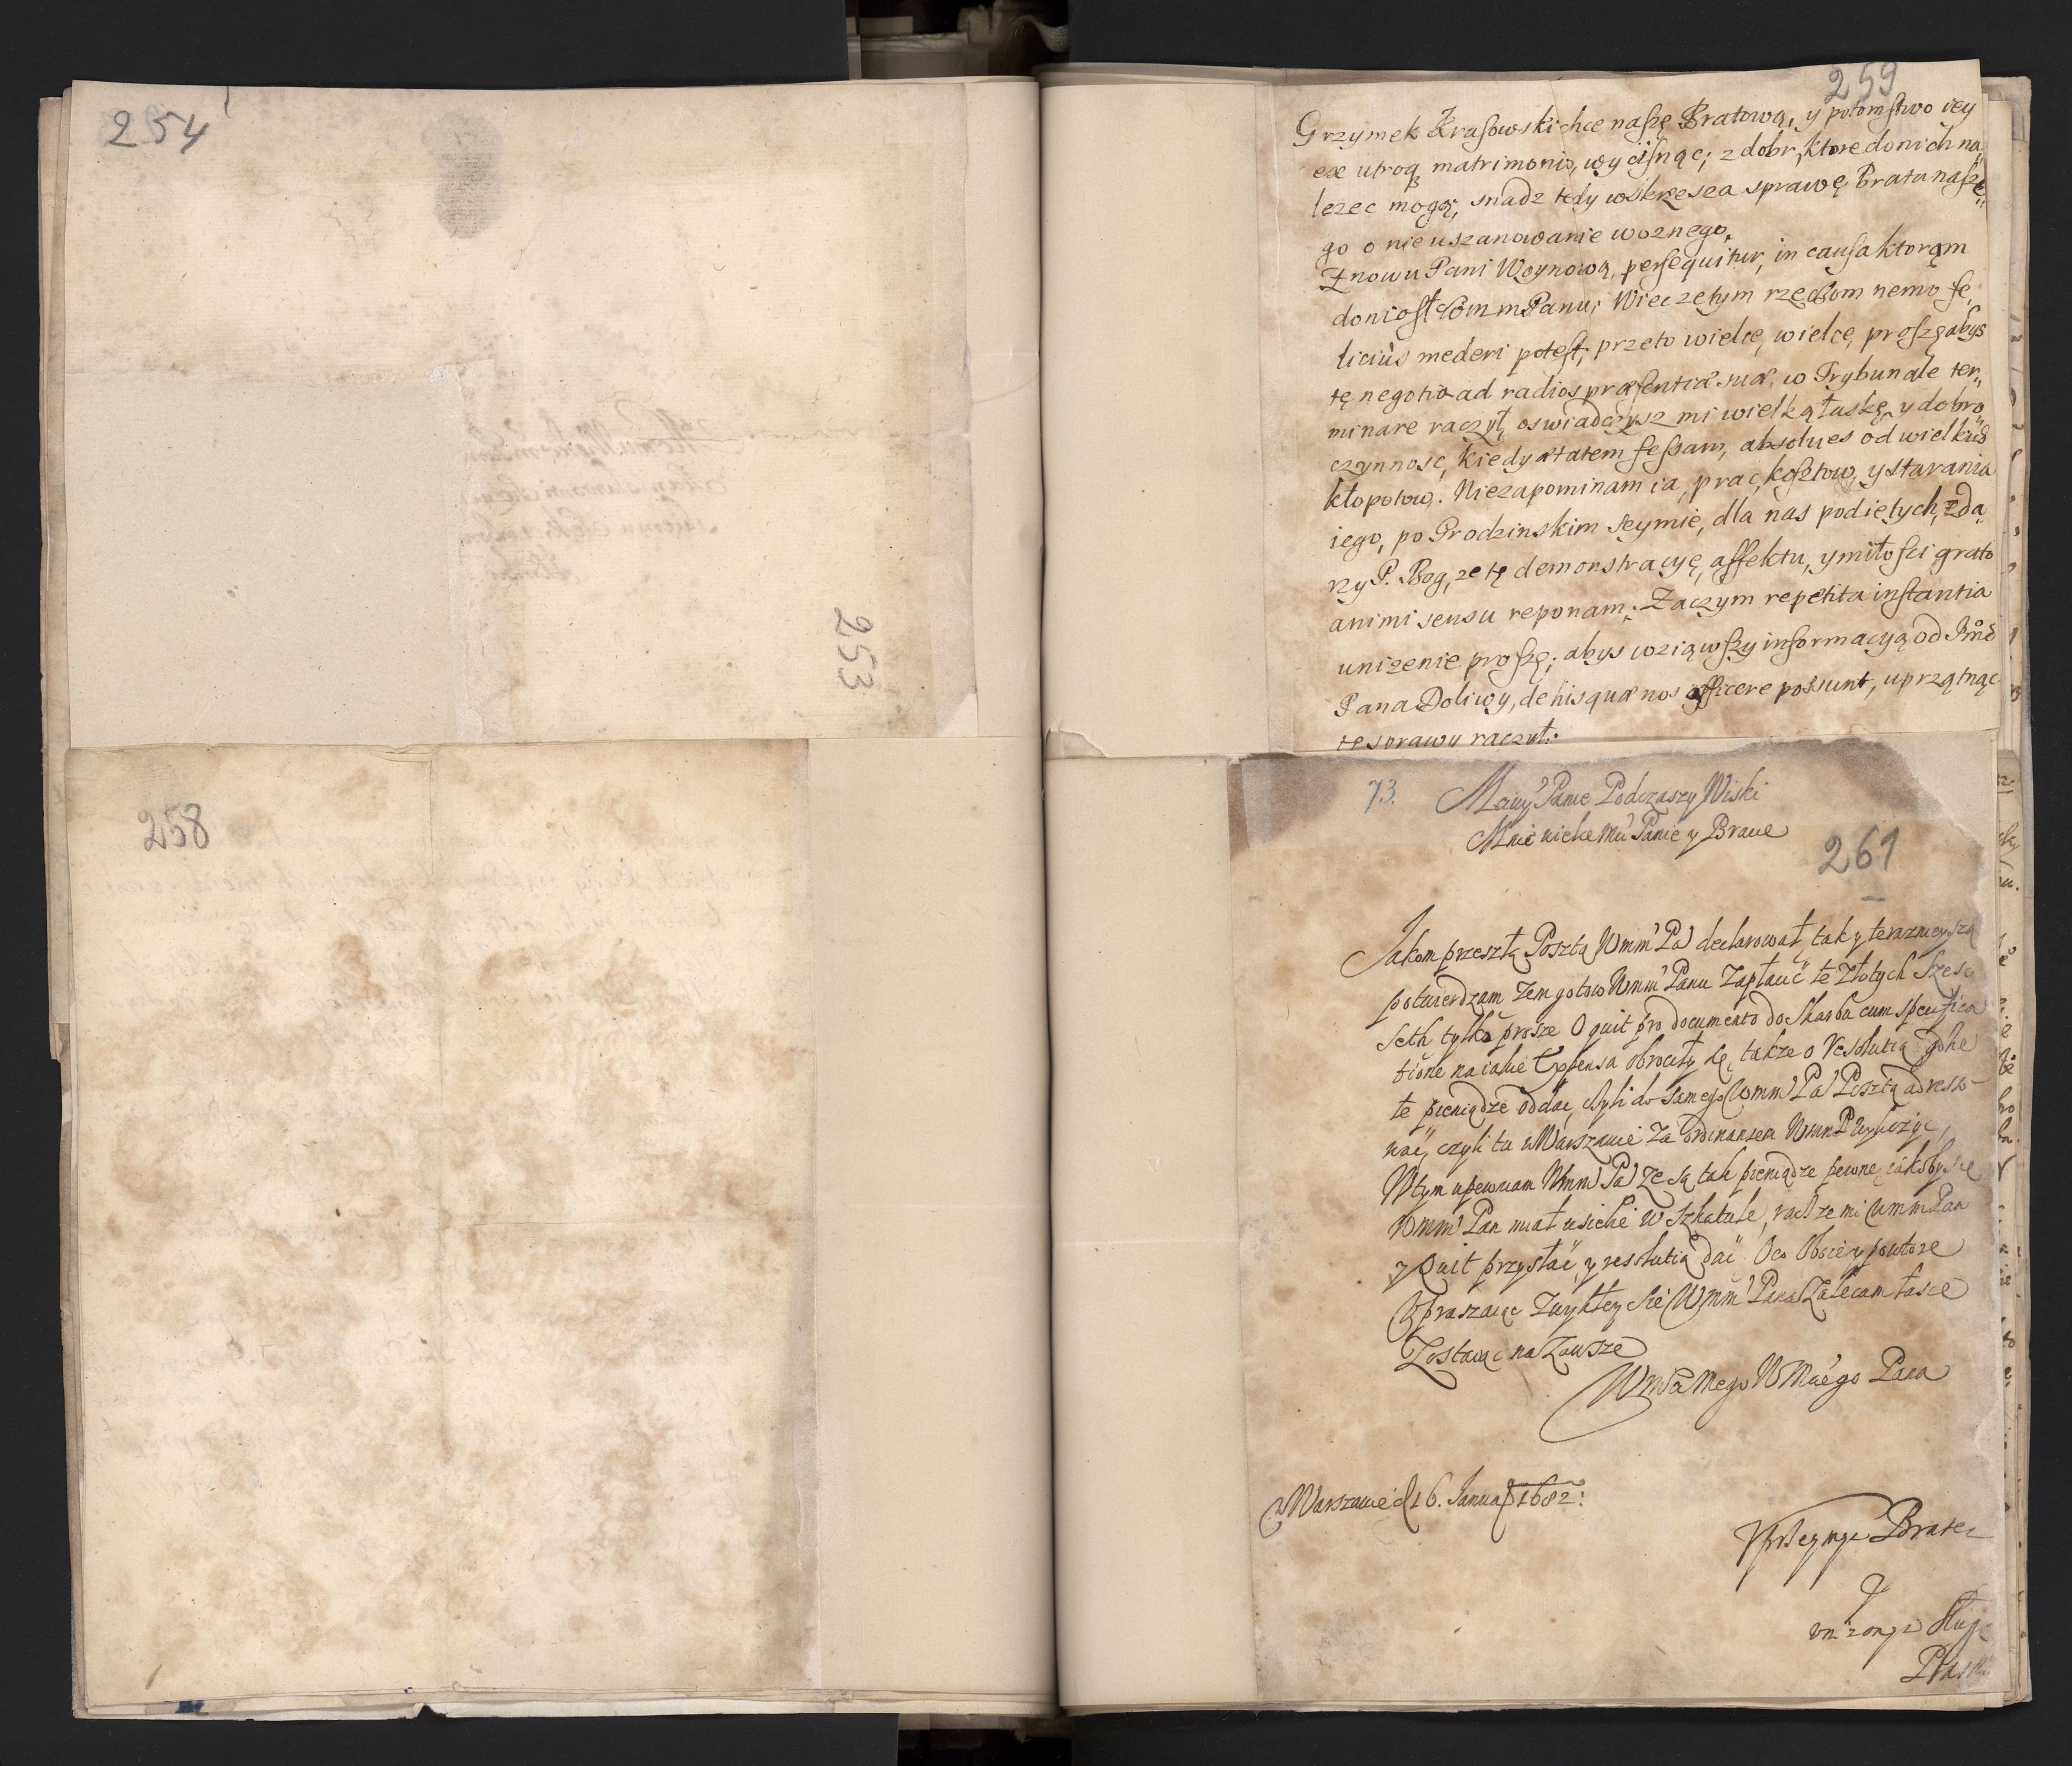 254
253
258
259
Grzymek Krasowski chce naszę Bratową, y potomstwo iey
ex utroq matrimonio, wyćisnąc; z dobr, ktore do nich na„
lezec mogą, snadz tedy wskrzesza sprawę Brata nasze„
go o nieuszanowanie woznego,
Znowu Pani Woynowa, persequitur, in causa ktorąm
doniosł WmmPanu; Wiec ze tym rzeczom nemo fe„
licius mederi potest; przeto wielce, wielce, proszę abys
tę negotia ad radios præsentiæ suæ, w Trybunale ter„
minare raczył, oswiadczysz mi wielką łaskę, y dobro„
czynnosc, kiedy ætatem fessam, absolues od wielkich
kłopotow. Niezapominam ia, prac, kosztow, y starania
iego, po Grodzinskim Seymie, dla nas podiętych, zda„
rzy P. Bog, ze tę demonstracyę, affektu, y miłosci grato
animi sensu reponam. Zaczym repetita instantia
unizenie proszę; abys wziąwszy informacyą od Jmci
Pana Doliwy, de his quæ nos afficere possunt, uprzątnąc
te sprawy raczył.
73. Mciwy Panie Podczaszy Wiski
Mnie wielce Mci Panie y Bracie
261
Jakom przeszłą Posztą Wmm Pa declarował, tak y teraznieyszą
potwierdzam Zem gotow Wmm Panu Zapłacić te Złotych Szesc
Seth tylko prosze O quit pro documento do Skarba cum specifica
tione na iakie Expensa obrociły się, także o resolutią gdzie
te pieniądze oddac, czyli do samego Wmm Pa Posztą adresso-
wac, czyli tu w Warszawie Za ordinansem WmmP wyliczyc,
W tym upewniam Wmm Pa Ze są tak pieniądze pewne, iakoby ie
Wmm Pan miał u siebie w Szkatule, racz ze mi Wmm Pan
y Quit przysłać, y resolutią dać. Oco Oboie y powtore
Upraszaiąc Zwykłey sie Wmm Pana Zalecam łasce
Zostaiąc na Zawsze
WmPa Mego WMciego Pana
w Warszawie d 16. Januar 1682:
Uprzeymy Brat
y
unizony Sług